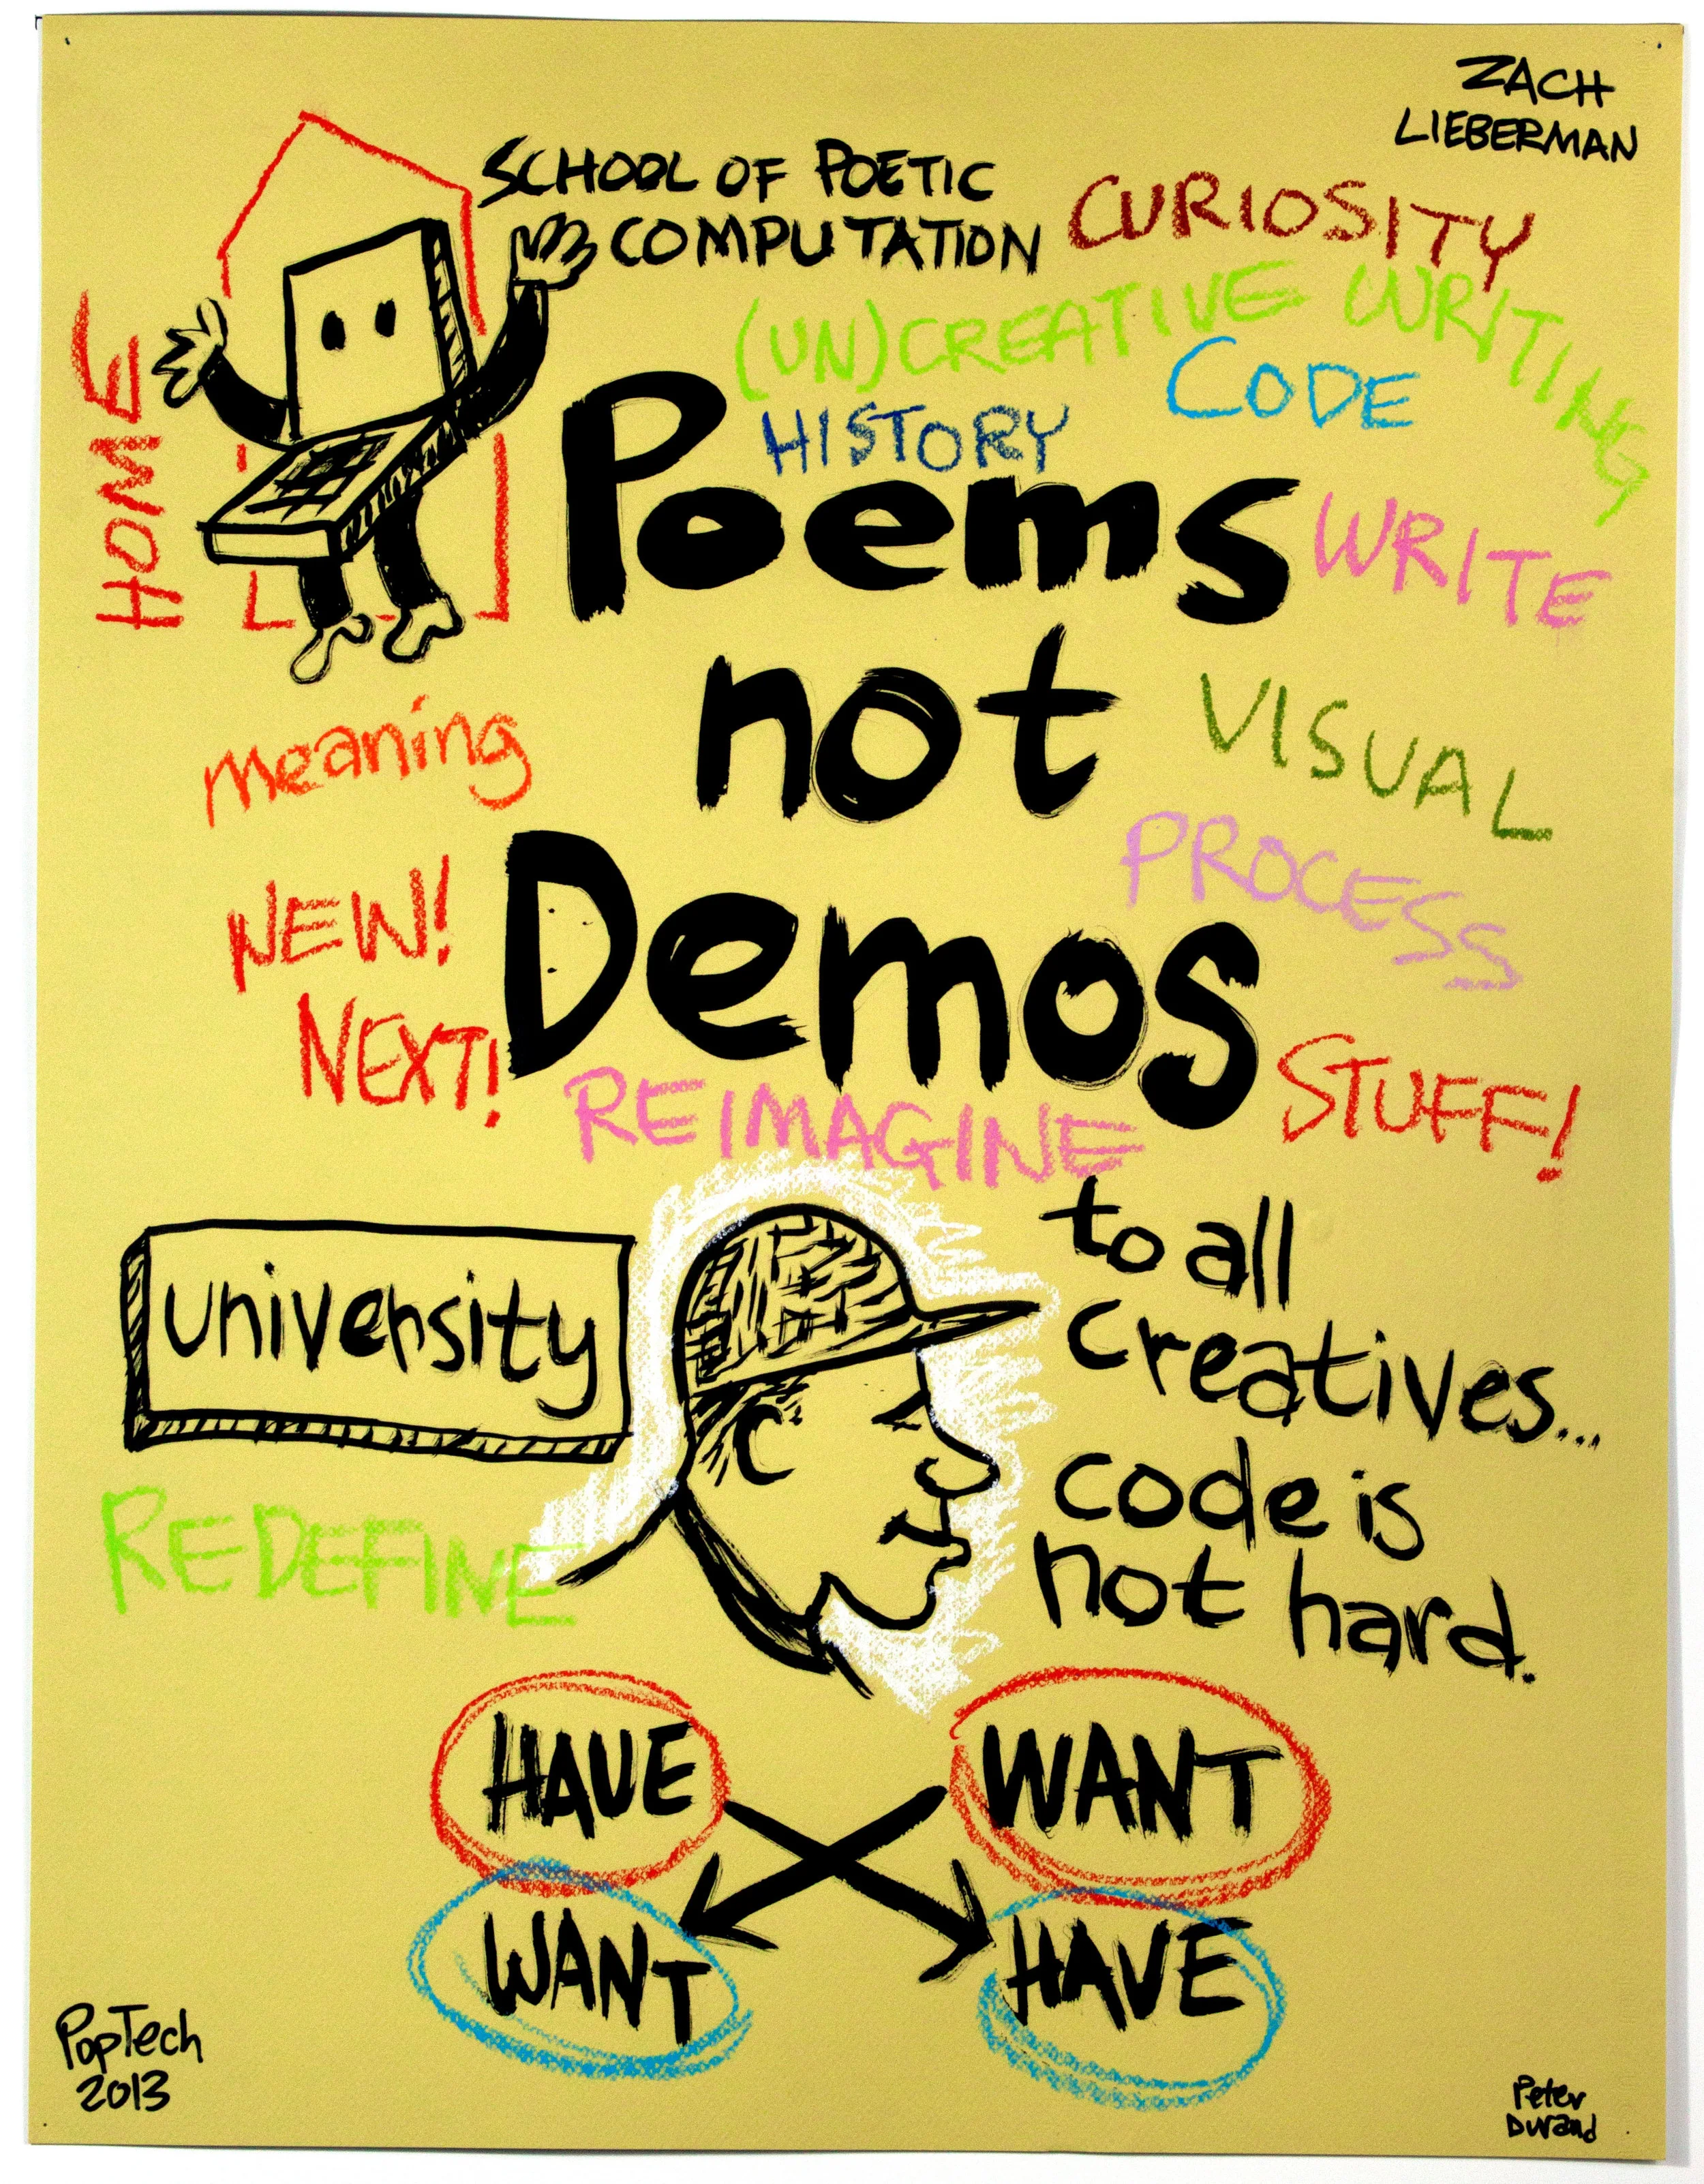 ZACH
LIEBERMAN
SCHOOL OF POETIC
COMPUTATION
CURIOSITY
(UN)CREATIVE WRITING
CODE
HISTORY
HOME
Poems
WRITE
not
VISUAL
meaning
PROCESS
NEW!
Demos
NEXT!
STUFF!
REIMAGINE
university
to all
creatives...
code is
not hard.
REDEFINE
HAVE
WANT
WANT
HAVE
PopTech
2013
Peter
Durand